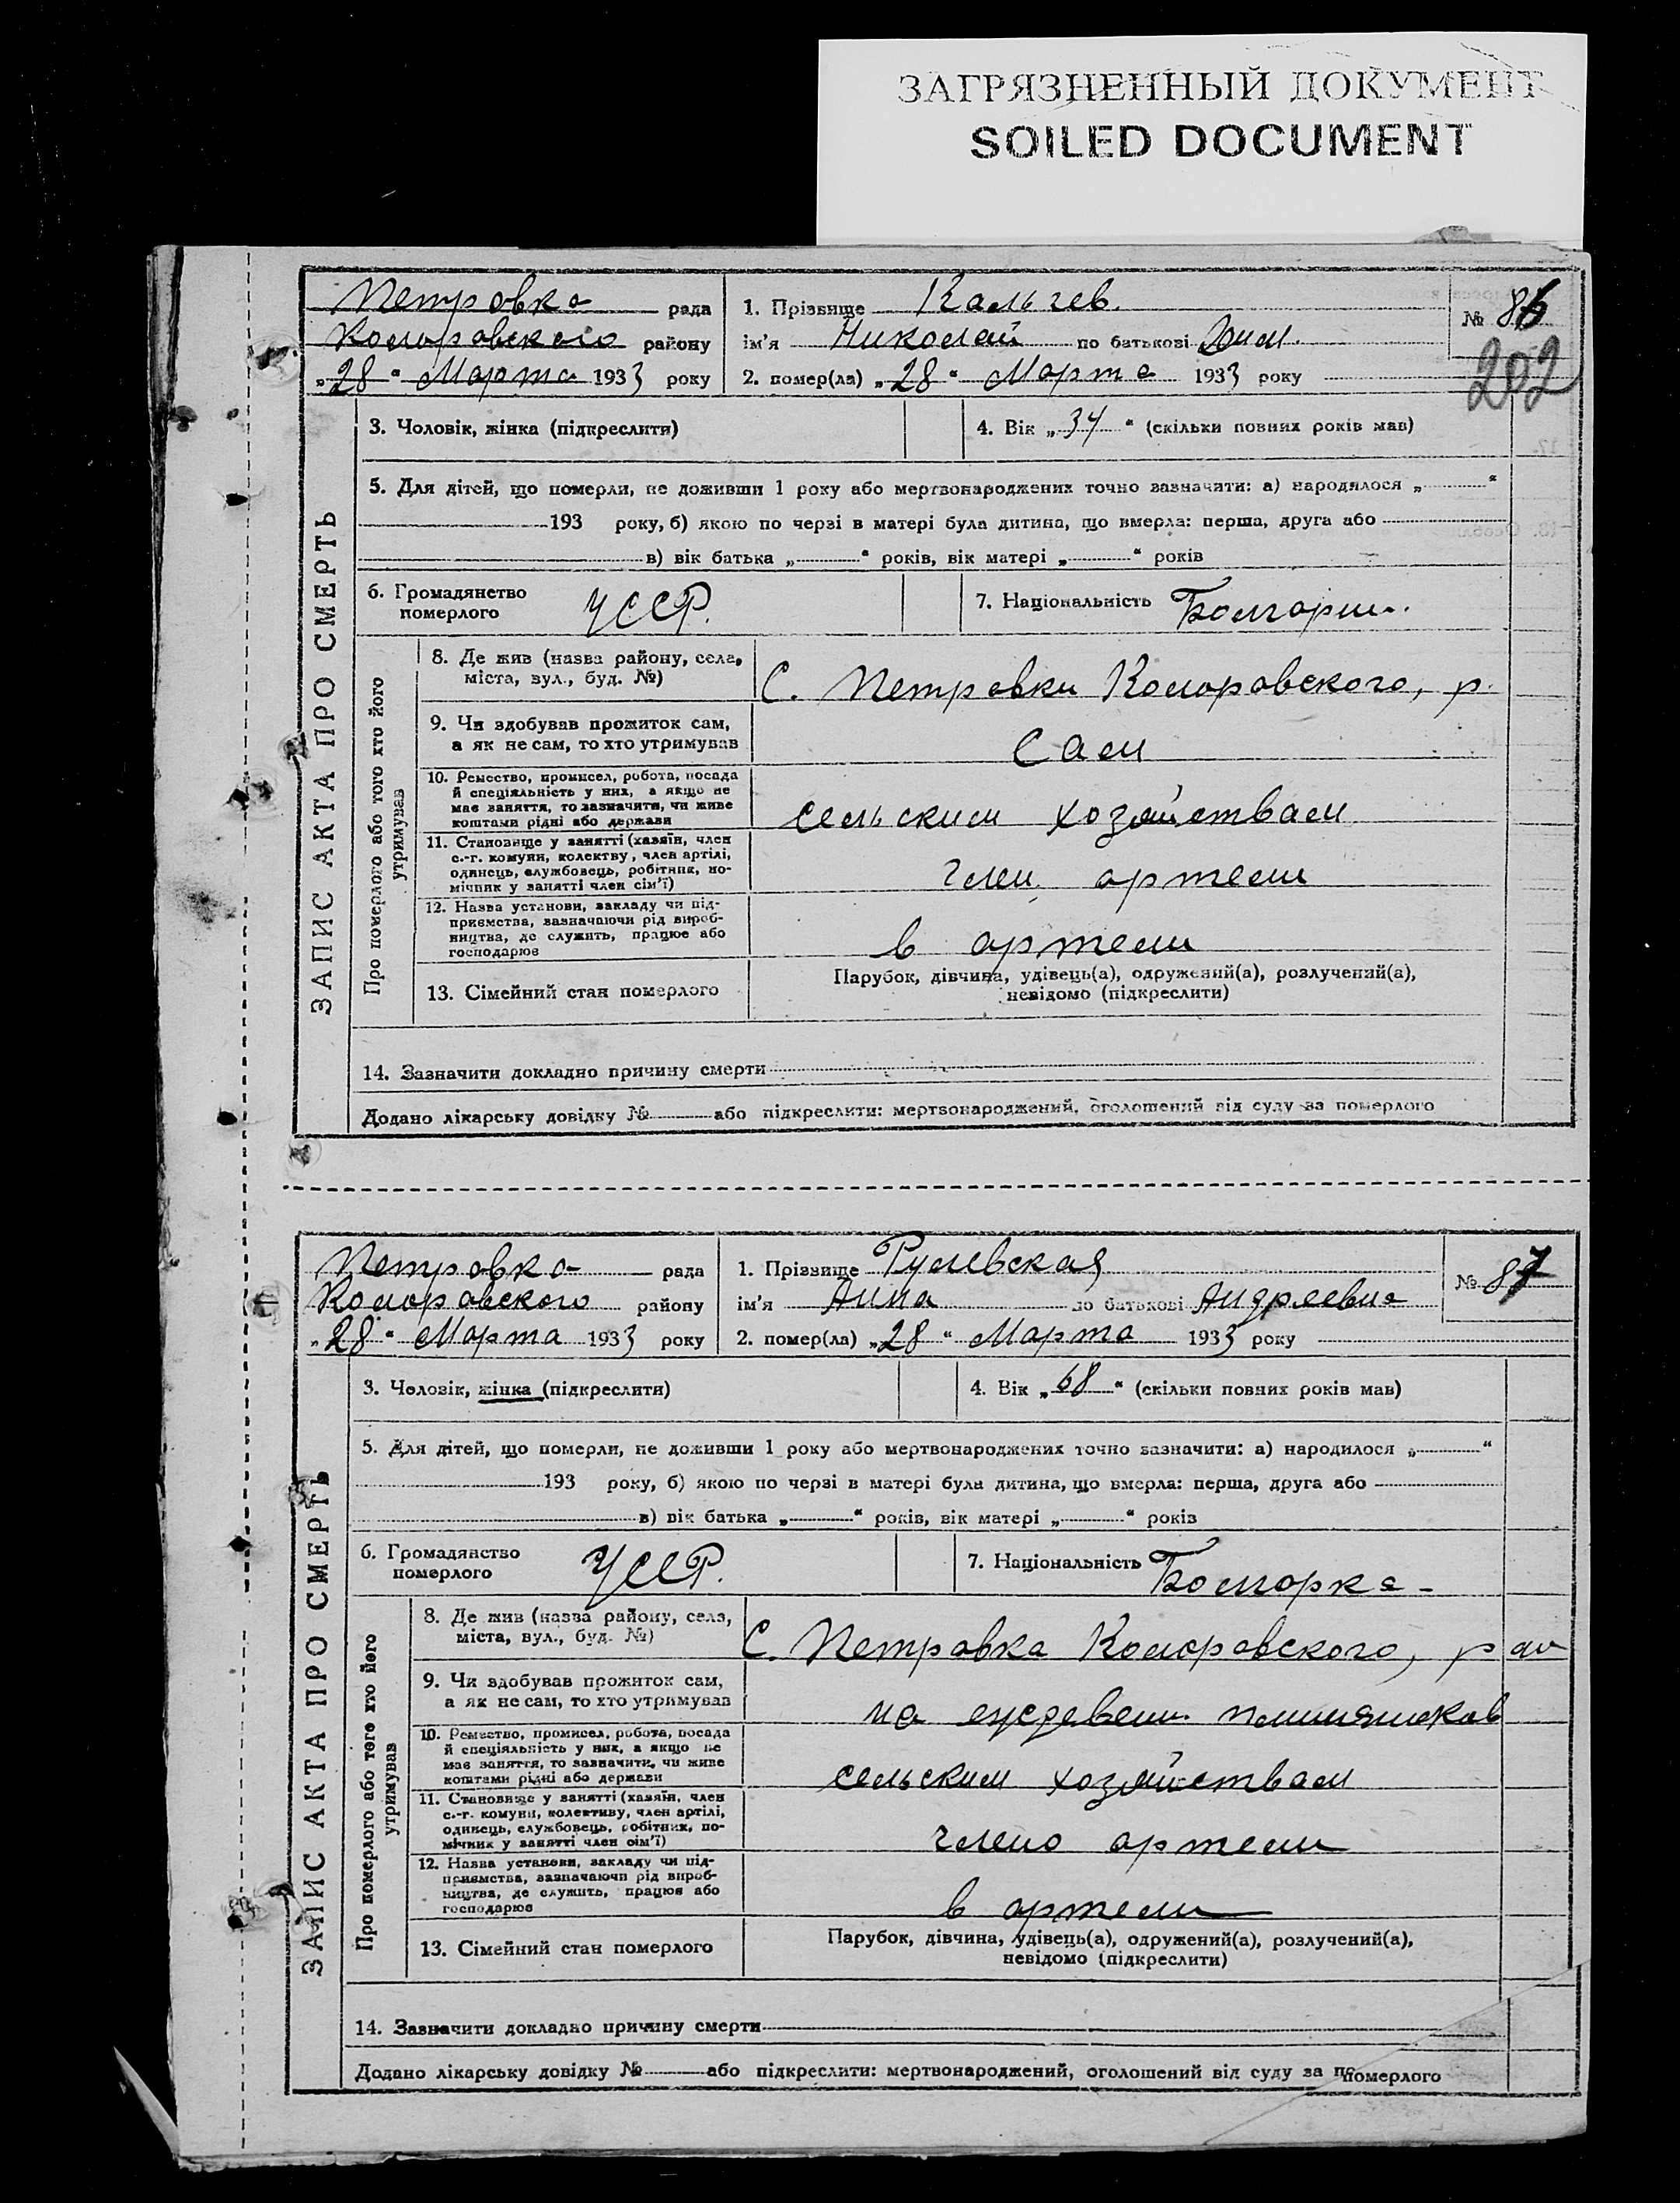 ЗАГРЯЗНЕННЫЙ ДОКУМЕНТ
SOILED DOCUMENT
Петровка рада
Коларовского району
„28“ Марта 1933 року
1. Прізвище Кальчев.
ім'я Николай по батькові Дим.
2. помер(ла) „28“ Марта 1933 року
№ 86
202
ЗАПИС АКТА ПРО СМЕРТЬ
3. Чоловік, жінка (підкреслити)
4. Вік „34“ (скільки повних років мав)
5. Для дітей, що померли, не доживши 1 року або мертвонароджених точно зазначити: а) народилося „ “
193 року, б) якою по черзі в матері була дитина, що вмерла: перша, друга або
в) вік батька „ “ років, вік матері „ “ років
6. Громадянство
померлого УССР.
7. Національність Болгарин.
Про померлого або того хто його
утримував
8. Де жив (назва району, села,
міста, вул., буд. №)
С. Петровки Коларовского, р.
9. Чи здобував прожиток сам,
а як не сам, то хто утримував
Сам
10. Ремество, промисел, робота, посада
й спеціяльність у них, а якщо не
має заняття, то зазначити, чи живе
коштами рідні або держави
сельским хозяйствам
11. Становище у занятті (хазяїн, член
с.-г. комуни, колективу, член артілі,
одинець, службовець, робітник, по-
мічник у занятті член сім'ї)
член артели
12. Назва установи, закладу чи під-
приємства, зазначаючи рід вироб-
ництва, де служить, працює або
господарює
в артели
13. Сімейний стан померлого
Парубок, дівчина, удівець(а), одружений(а), розлучений(а),
невідомо (підкреслити)
14. Зазначити докладно причину смерти
Додано лікарську довідку № або підкреслити: мертвонароджений, оголошений від суду за померлого
Петровка рада
Коларовского району
„28“ Марта 1933 року
1. Прізвище Рулевская
ім'я Анна по батькові Андреевна
2. помер(ла) „28“ Марта 1933 року
№ 87
ЗАПИС АКТА ПРО СМЕРТЬ
3. Чоловік, жінка (підкреслити)
4. Вік „68“ (скільки повних років мав)
5. Для дітей, що померли, не доживши 1 року або мертвонароджених точно зазначити: а) народилося „ “
193 року, б) якою по черзі в матері була дитина, що вмерла: перша, друга або
в) вік батька „ “ років, вік матері „ “ років
6. Громадянство
померлого УССР.
7. Національність Болгарка
Про померлого або того хто його
утримував
8. Де жив (назва району, села,
міста, вул., буд. №)
С. Петровка Коларовского,
9. Чи здобував прожиток сам,
а як не сам, то хто утримував
на
10. Ремество, промисел, робота, посада
й спеціяльність у них, а якщо не
має заняття, то зазначити, чи живе
коштами рідні або держави
сельским хозяйствам
11. Становище у занятті (хазяїн, член
с.-г. комуни, колективу, член артілі,
одинець, службовець, робітник, по-
мічник у занятті член сім'ї)
члено артели
12. Назва установи, закладу чи під-
приємства, зазначаючи рід вироб-
ництва, де служить, працює або
господарює
в артели
13. Сімейний стан померлого
Парубок, дівчина, удівець(а), одружений(а), розлучений(а),
невідомо (підкреслити)
14. Зазначити докладно причину смерти
Додано лікарську довідку № або підкреслити: мертвонароджений, оголошений від суду за померлого